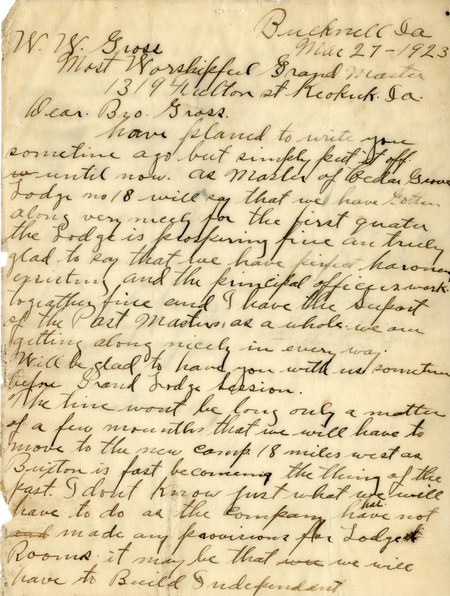 Bucknell Ia
Mar 27-1923
W. W. Gross
Most Worshipful Grand Master
1319 Fulton st Keokuk. Ia.
Dear. Bro. Gross.
have planed to write you
sometime ago but simply put it off
until now. as Master of Cedar Grove
Lodge no 18 will say that we have Goten
along very nicely for the first quater
the Lodge is prospering fine am truly
glad to say that we have perfect haromony
existing and the principal officers work
togeather fine and I have the suport
of the Past Masters as a whole. we are
getting along nicely in every way.
Will be glad to have you with us sometime
before Grand Lodge Session.
The time wont be long only a matter
of a few mounths that we will have to
move to the new camp 18 miles west as
Buxton is fast becoming the thing of the
past. I dont know just what we will
have to do as the company have not
made any provisions for Lodge
Rooms. it may be that we will
have to Build Independant